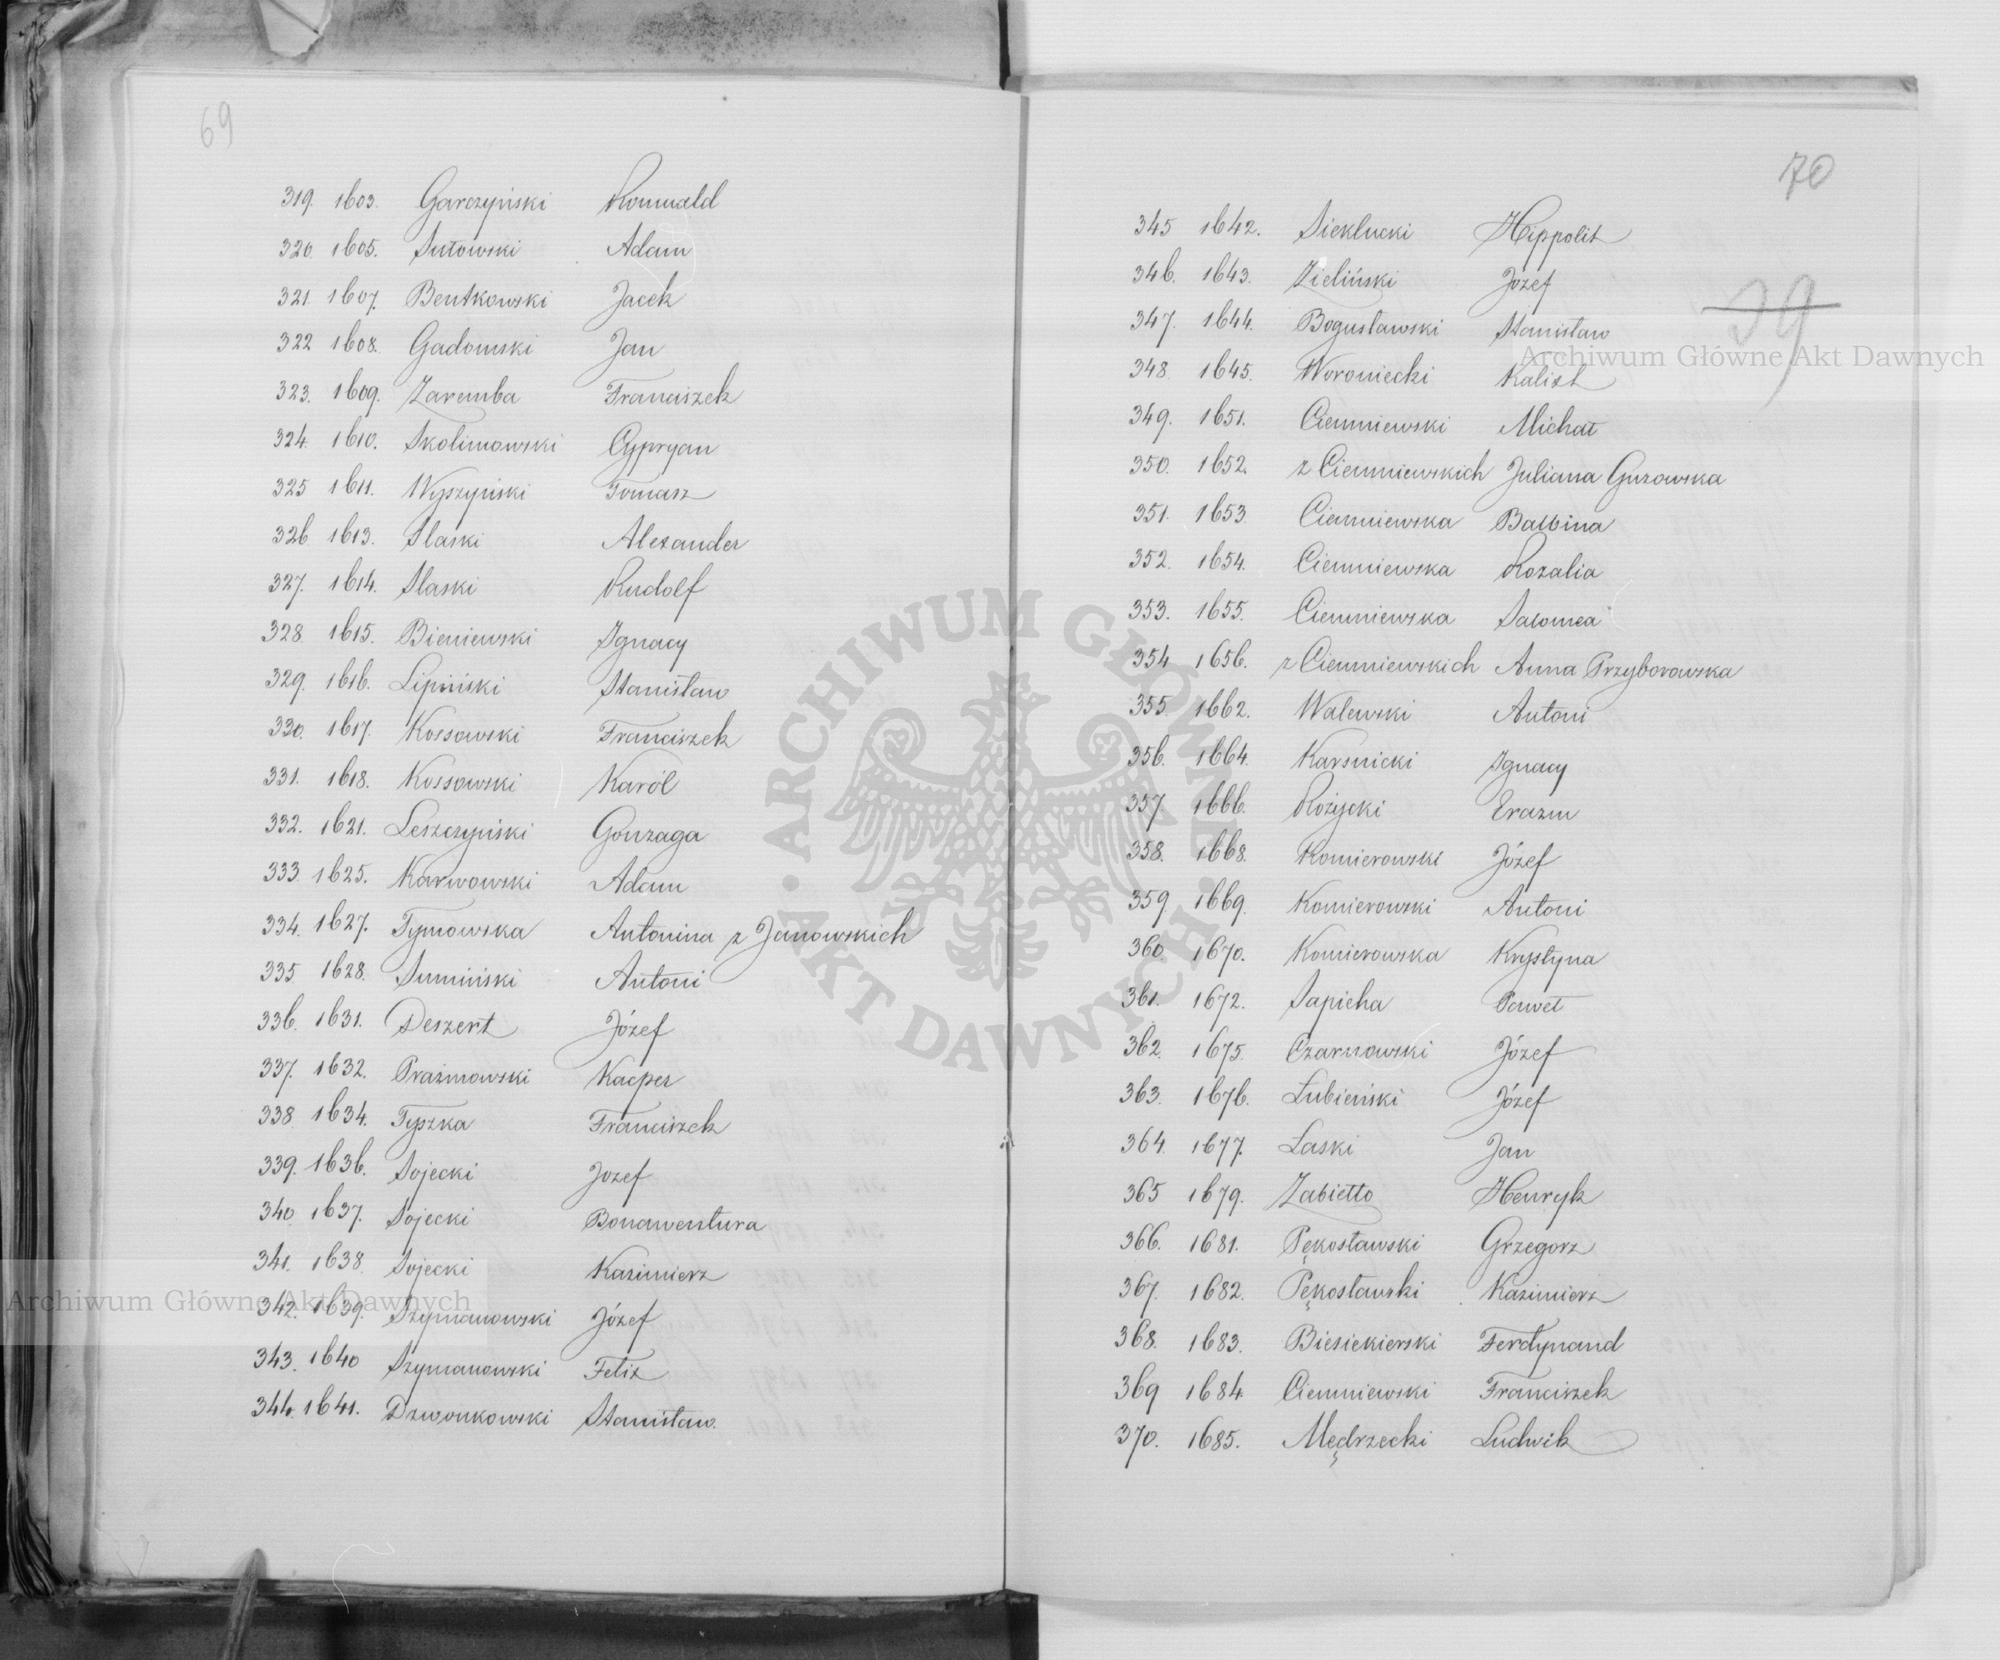 69
319. 1603. Garczyński Romuald
320. 1605. Sutowski Adam
321. 1607. Bentkowski Jacek
322 1608. Gadomski Jan
323. 1609. Zaremba Franciszek
324. 1610. Skolimowski Cypryan
325 1611. Wyszyński Tomasz
326 1613. Slaski Alexander
327. 1614. Slaski Rudolf
328. 1615. Bieniewski Ignacy
329. 1616. Lipiński Stanisław
330. 1617. Kossowski Franciszek
331. 1618. Kossowski Karól
332. 1621. Leszczyński Gonzaga
333. 1625. Karwowski Adam
334. 1627. Tymowska Antonina z Janowskich
335 1628. Sumiński Antoni
336. 1631. Deszert Józef
337. 1632. Prażmowski Kacper
338 1634. Tyszka Franciszek
339. 1636. Sojecki Jozef
340 1637. Sojecki Bonawentura
341. 1638. Sojecki Kazimierz
342. 1639. Szymanowski Józef
343. 1640 Szymanowski Felix
344. 1641. Dzwonkowski Stanisław.
70
345 1642. Siekłucki Hippolit
346. 1643. Zieliński Józef
347. 1644. Bogusławski Stanisław
348. 1645. Woroniecki Kalixt
349. 1651. Ciemniewski Michał
350. 1652. z Ciemniewskich Juliana Gurowska
351. 1653. Ciemniewska Balbina
352. 1654. Ciemniewska Rozalia
353. 1655. Ciemniewska Salomea
354 1656. z Ciemniewskich Anna Przyborowska
355. 1662. Walewski Antoni
356. 1664. Karsnicki Ignacy
357. 1666. Rożycki Erazm
358. 1668. Komierowski Józef
359. 1669. Komierowski Antoni
360. 1670. Komierowska Krystyna
361. 1672. Sapieha Paweł
362. 1675. Czarnowski Józef
363. 1676. Łubieński Józef
364. 1677. Łaski Jan
365 1679. Zabiełło Henryk
366. 1681. Pękosławski Grzegorz
367. 1682. Pękosławski Kazimierz
368. 1683. Biesiekierski Ferdynand
369 1684. Ciemniewski Franciszek
370. 1685. Mędrzecki Ludwik
Archiwum Główne Akt Dawnych
Archiwum Główne Akt Dawnych
ARCHIWUM GŁÓWNE AKT DAWNYCH